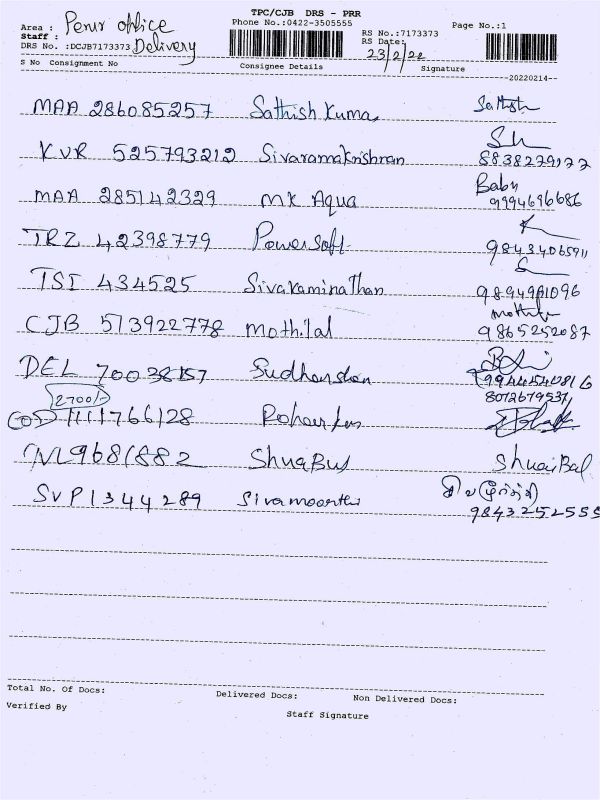 TPC/CJB DRS - PRR
Area : Perur office Phone No.:0422-3505555 Page No.:1
Staff : RS No.:7173373
DRS No. :DCJB7173373 Delivery RS Date: 23/2/22
S No Consignment No Consignee Details Signature
20220214
MAA 286085257 Sathish Kumar Sathish
KVR 525793212 Sivaramakrishnan
MAA 285142329 MK Aqua Babu 9994696686
TRZ 42398779 Powersoft
TSI 434525 Sivakaminathan
CJB 513922778 Mothilal 9865252087
DEL 70038157 Sudharshan
2700/- 8072679537
COD 1111766128
9681882 ShuaBus ShuaiBal
SVP1344289 Sivamoorthi சிவமூர்த்தி
9843252555
Total No. Of Docs: Delivered Docs: Non Delivered Docs:
Verified By Staff Signature